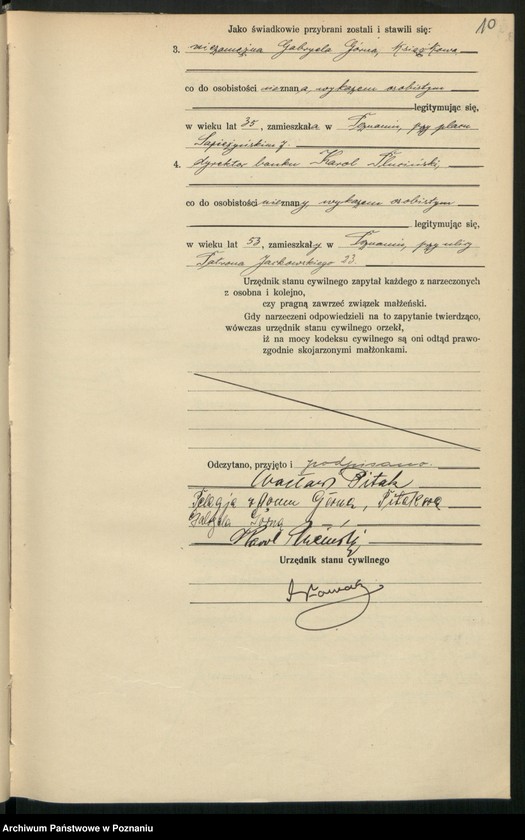 10
Jako świadkowie przybrani zostali i stawili się:
3. niezamężna Gabryela Górna,
co do osobistości nieznana, wykazem osobistym
legitymując się,
w wieku lat 35, zamieszkała w Poznaniu, przy placu
Sapieżyńskim 7.
4. dyrektor banku Karol
co do osobistości nieznany wykazem osobistym
legitymując się,
w wieku lat 53, zamieszkały w Poznaniu, przy ulicy
Patrona Jackowskiego 23.
Urzędnik stanu cywilnego zapytał każdego z narzeczonych
z osobna i kolejno,
czy pragną zawrzeć związek małżeński.
Gdy narzeczeni odpowiedzieli na to zapytanie twierdząco,
wówczas urzędnik stanu cywilnego orzekł,
iż na mocy kodeksu cywilnego są oni odtąd prawo-
zgodnie skojarzonymi małżonkami.
Odczytano, przyjęto i podpisano.
Wacław Pitak
Pelagja z domu Górna, Pitakowa
Gabryela Górna
Karol
Urzędnik stanu cywilnego
Archiwum Państwowe w Poznaniu